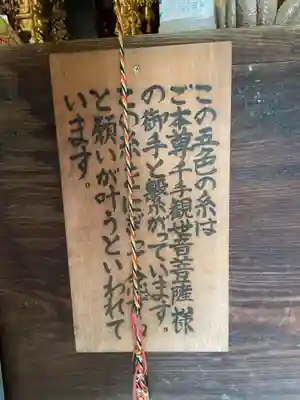 この五色の糸は
ご本尊千手観世音菩薩様
の御手と繋がっています。
この糸を
と願いが叶うといわれて
います。